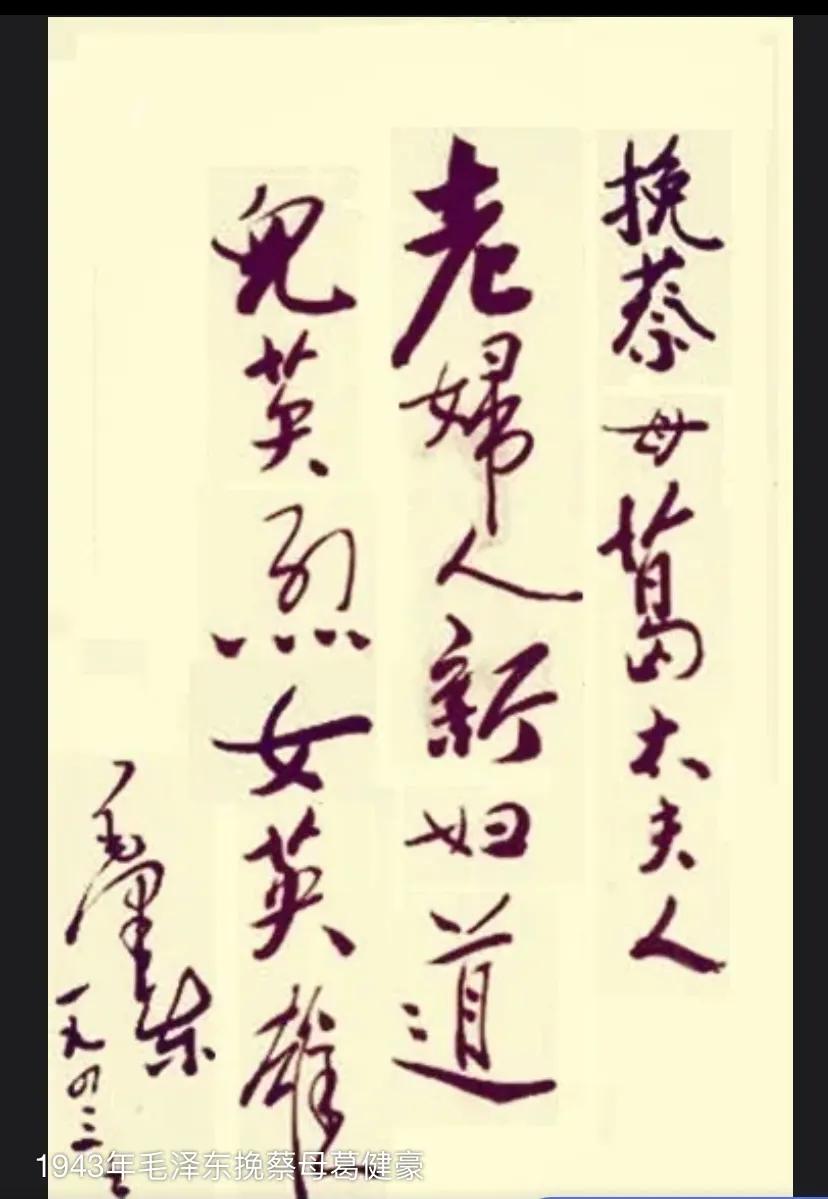 挽蔡母葛太夫人
老婦人新妇道
兒英烈女英雄
毛澤东
一九四三
1943年毛泽东挽蔡母葛健豪